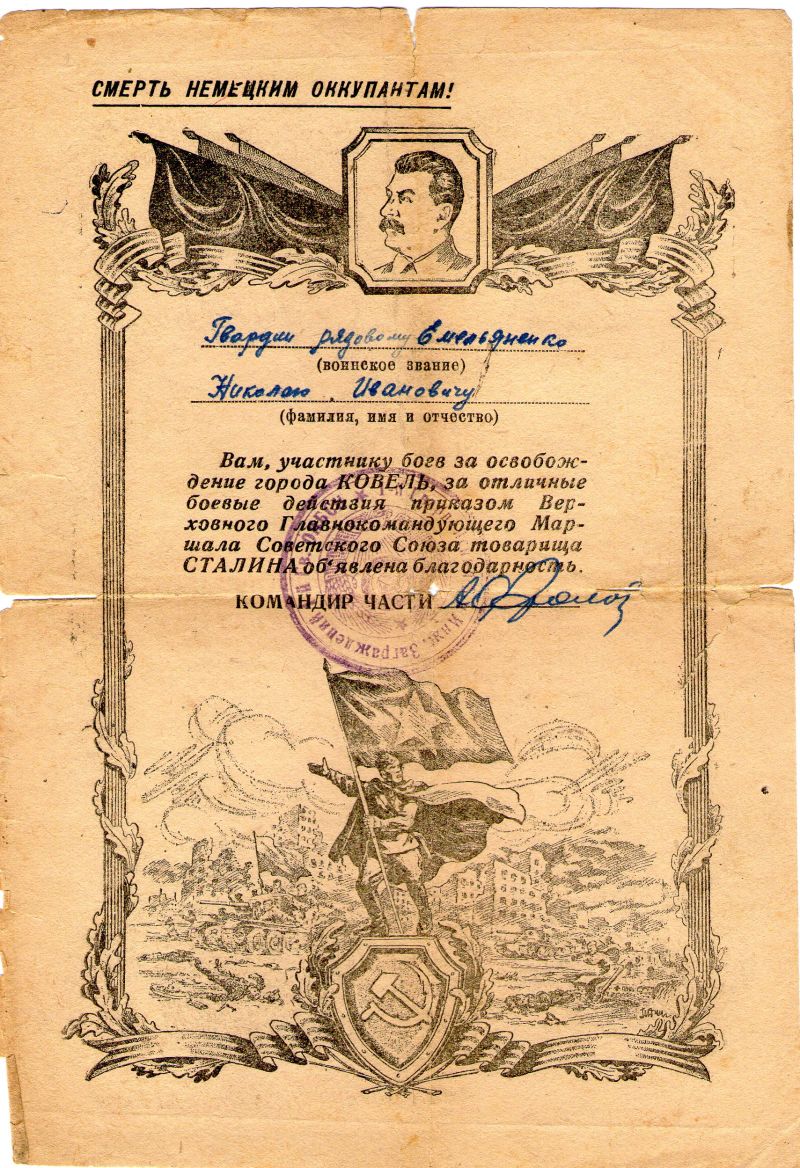 СМЕРТЬ НЕМЕЦКИМ ОККУПАНТАМ!
Гвардии рядовому Емельяненко
(воинское звание)
Николаю Ивановичу
(фамилия, имя и отчество)
Вам, участнику боев за освобож-
дение города КОВЕЛЬ, за отличные
боевые действия приказом Вер-
ховного Главнокомандующего Мар-
шала Советского Союза товарища
СТАЛИНА об‘явлена благодарность.
КОМАНДИР ЧАСТИ
Инж. Заграждений